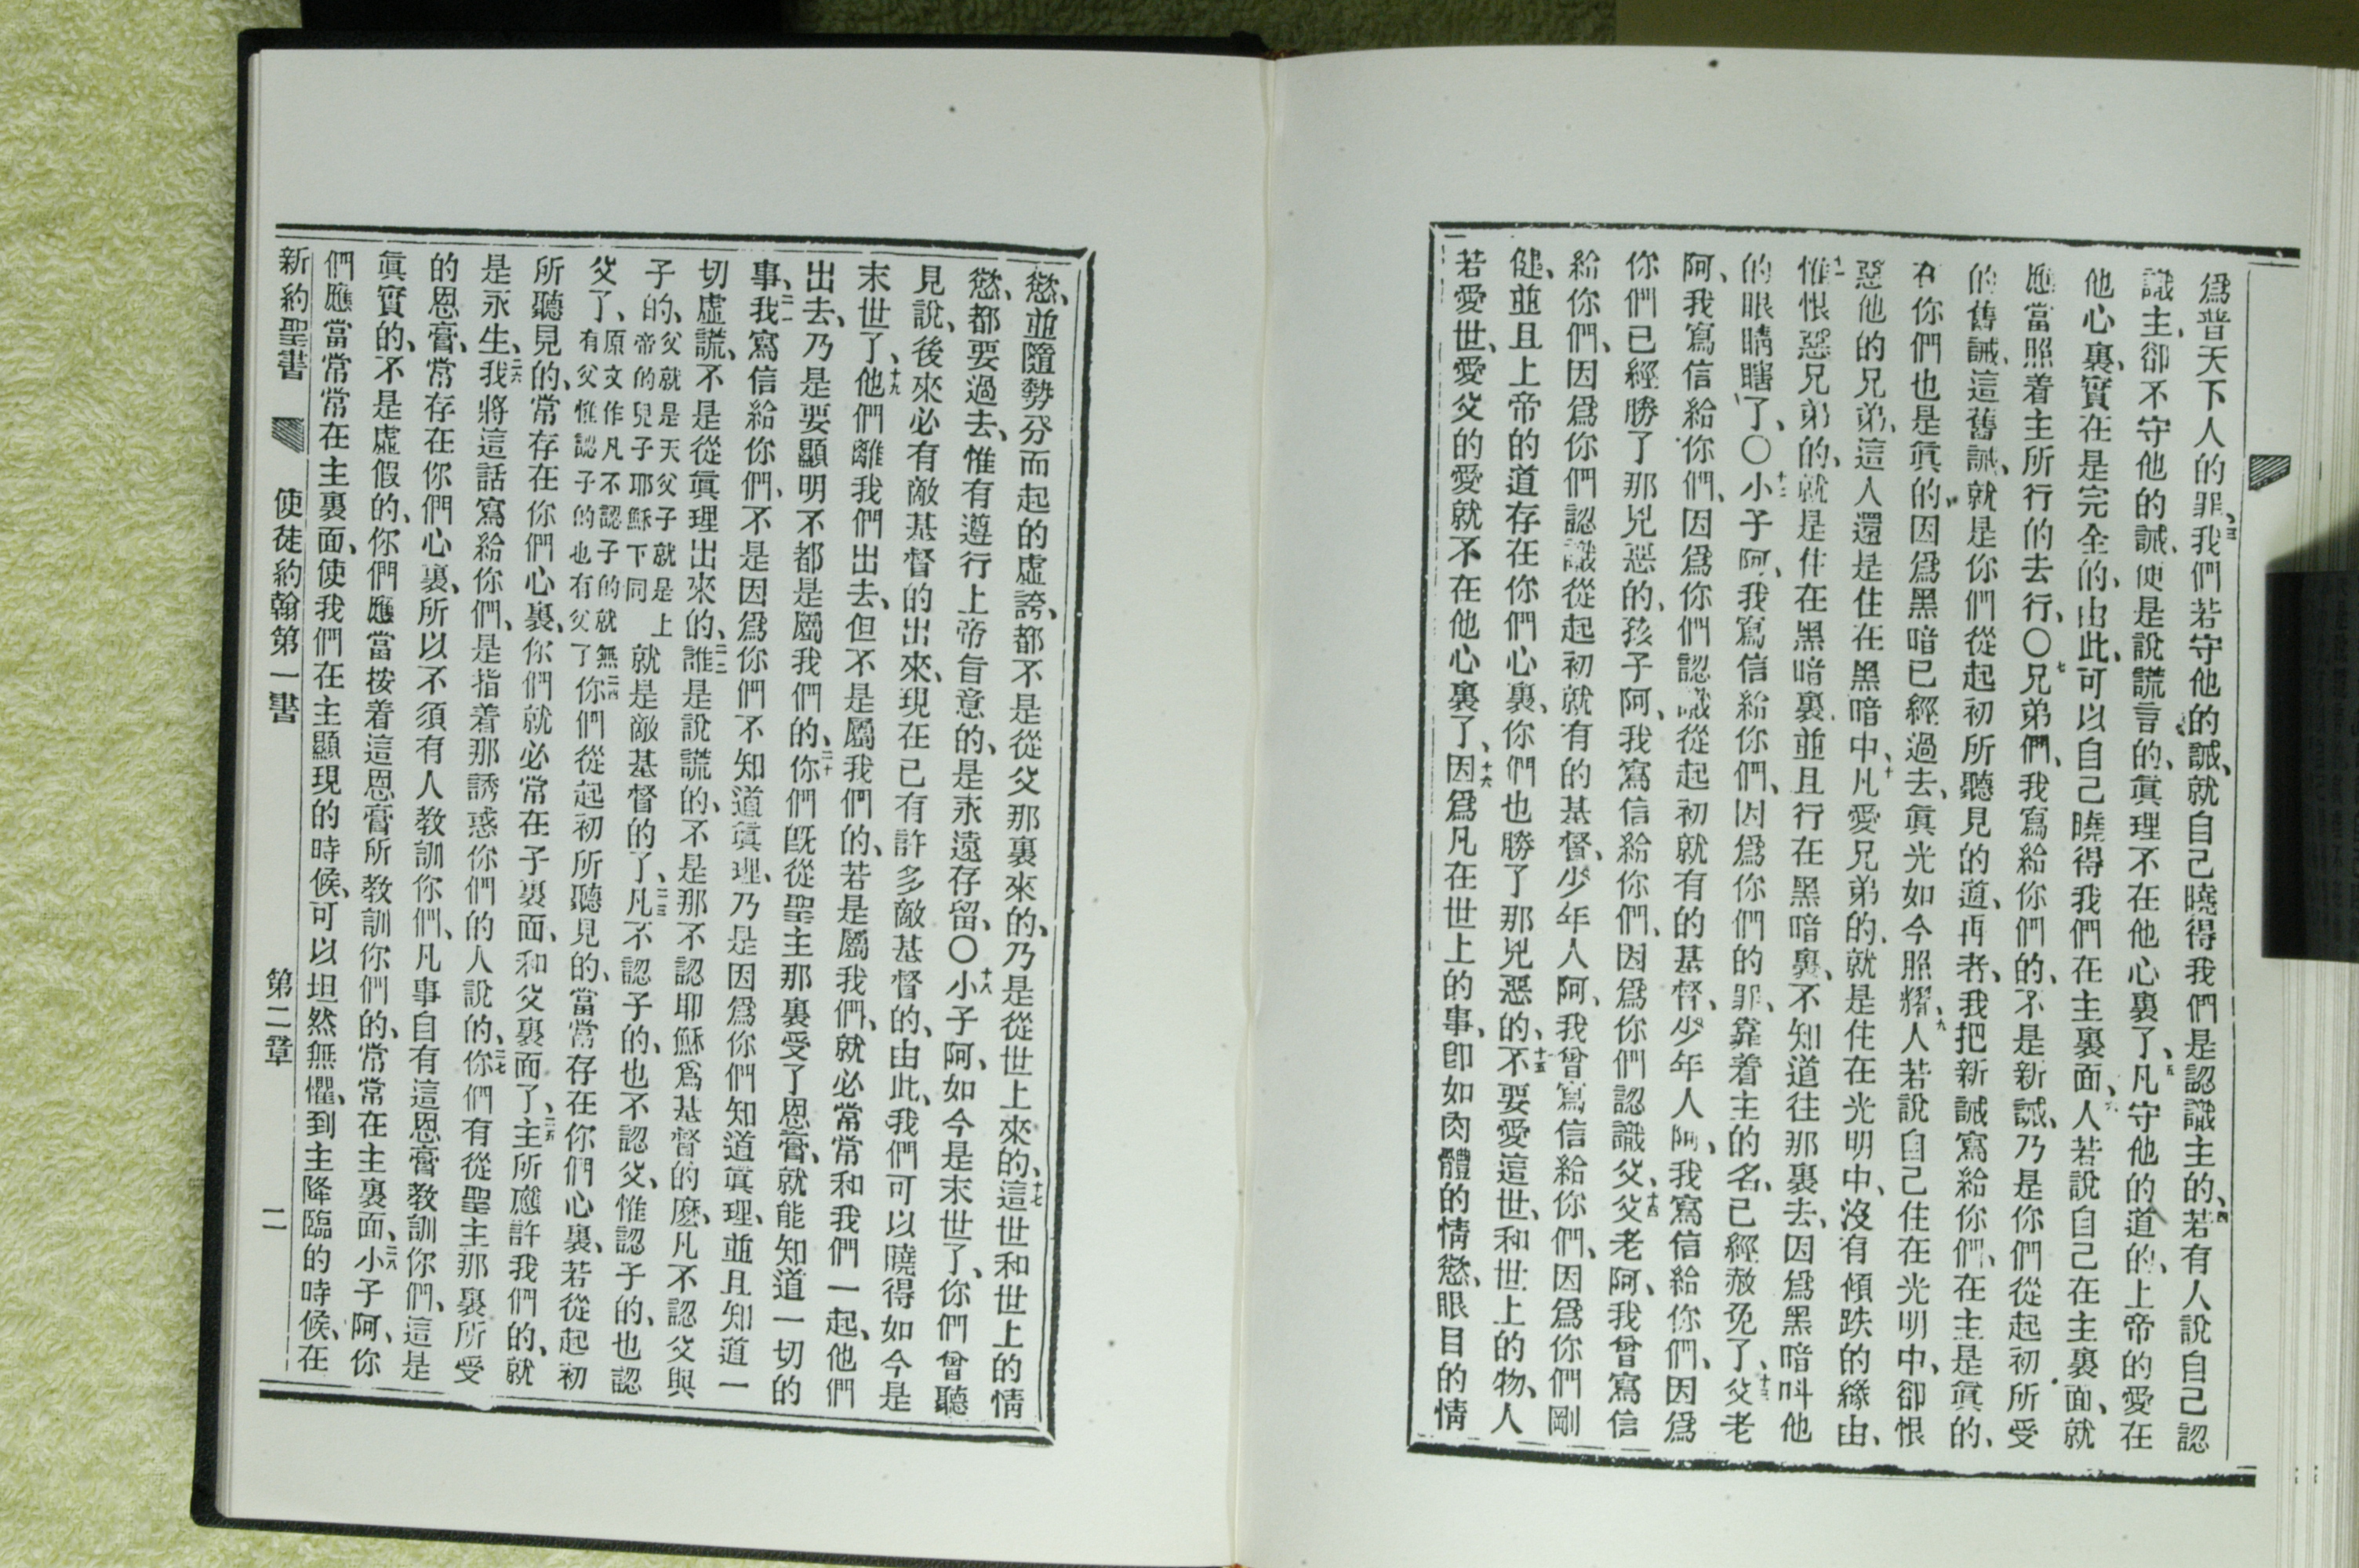 爲普天下人的罪、三我們若守他的誡、就自己曉得我們是認識主的、四若有人說自己認
識主、卻不守他的誡、便是說謊言的、眞理不在他心裏了、五凡守他的道的、上帝的愛在
他心裏、實在是完全的、由此、可以自己曉得我們在主裏面、六人若說自己在主裏面、就
應當照着主所行的去行、〇七兄弟們、我寫給你們的、不是新誡、乃是你們從起初所受
的舊誡、這舊誡、就是你們從起初所聽見的道、再者、我把新誡寫給你們、在主是眞的、
在你們也是眞的、因爲黑暗已經過去、眞光如今照耀、九人若說自己住在光明中、卻恨
惡他的兄弟、這人還是住在黑暗中、十凡愛兄弟的、就是住在光明中、沒有傾跌的緣由、
惟恨惡兄弟的、就是住在黑暗裏、並且行在黑暗裏、不知道往那裏去、因爲黑暗叫他
的眼睛瞎了、〇十二小子阿、我寫信給你們、因爲你們的罪、靠着主的名、已經赦免了、十三父老
阿、我寫信給你們、因爲你們認識從起初就有的基督、少年人阿、我寫信給你們、因爲
你們已經勝了那兇惡的、孩子阿、我寫信給你們、因爲你們認識父、十四父老阿、我曾寫信
給你們、因爲你們認識從起初就有的基督、少年人阿、我曾寫信給你們、因爲你們剛
健、並且上帝的道存在你們心裏、你們也勝了那兇惡的、十五不要愛這世、和世上的物、人
若愛世、愛父的愛就不在他心裏了、十六因爲凡在世上的事、卽如肉體的情慾、眼目的情
慾、並隨勢分而起的虛誇、都不是從父那裏來的、乃是從世上來的、十七這世和世上的情
慾、都要過去、惟有遵行上帝旨意的、是永遠存留、〇十八小子阿、如今是末世了、你們曾聽
見說、後來必有敵基督的出來、現在已有許多敵基督的、由此、我們可以曉得如今是
末世了、十九他們離我們出去、但不是屬我們的、若是屬我們、就必常常和我們一起、他們
出去、乃是要顯明不都是屬我們的、二十你們旣從聖主那裏受了恩膏、就能知道一切的
事、二一我寫信給你們、不是因爲你們不知道眞理、乃是因爲你們知道眞理、並且知道一
切虛謊、不是從眞理出來的、二二誰是說謊的、不是那不認耶穌爲基督的麽、凡不認父與
子的、父就是天父子就是上帝的兒子耶穌下同就是敵基督的了、二三凡不認子的、也不認父、惟認子的、也認
父了、原文作凡不認子的就無有父惟認子的也有父了二四你們從起初所聽見的、當常存在你們心裏、若從起初
所聽見的、常存在你們心裏、你們就必常在子裏面、和父裏面了、二五主所應許我們的、就
是永生、二六我將這話寫給你們、是指着那誘惑你們的人說的、二七你們有從聖主那裏所受
的恩膏、常存在你們心裏、所以不須有人教訓你們、凡事自有這恩膏教訓你們、這是
眞實的、不是虛假的、你們應當按着這恩膏所教訓你們的、常常在主裏面、二八小子阿、你
們應當常常在主裏面、使我們在主顯現的時候、可以坦然無懼、到主降臨的時候、在
新約聖書 使徒約翰第一書 第二章 二